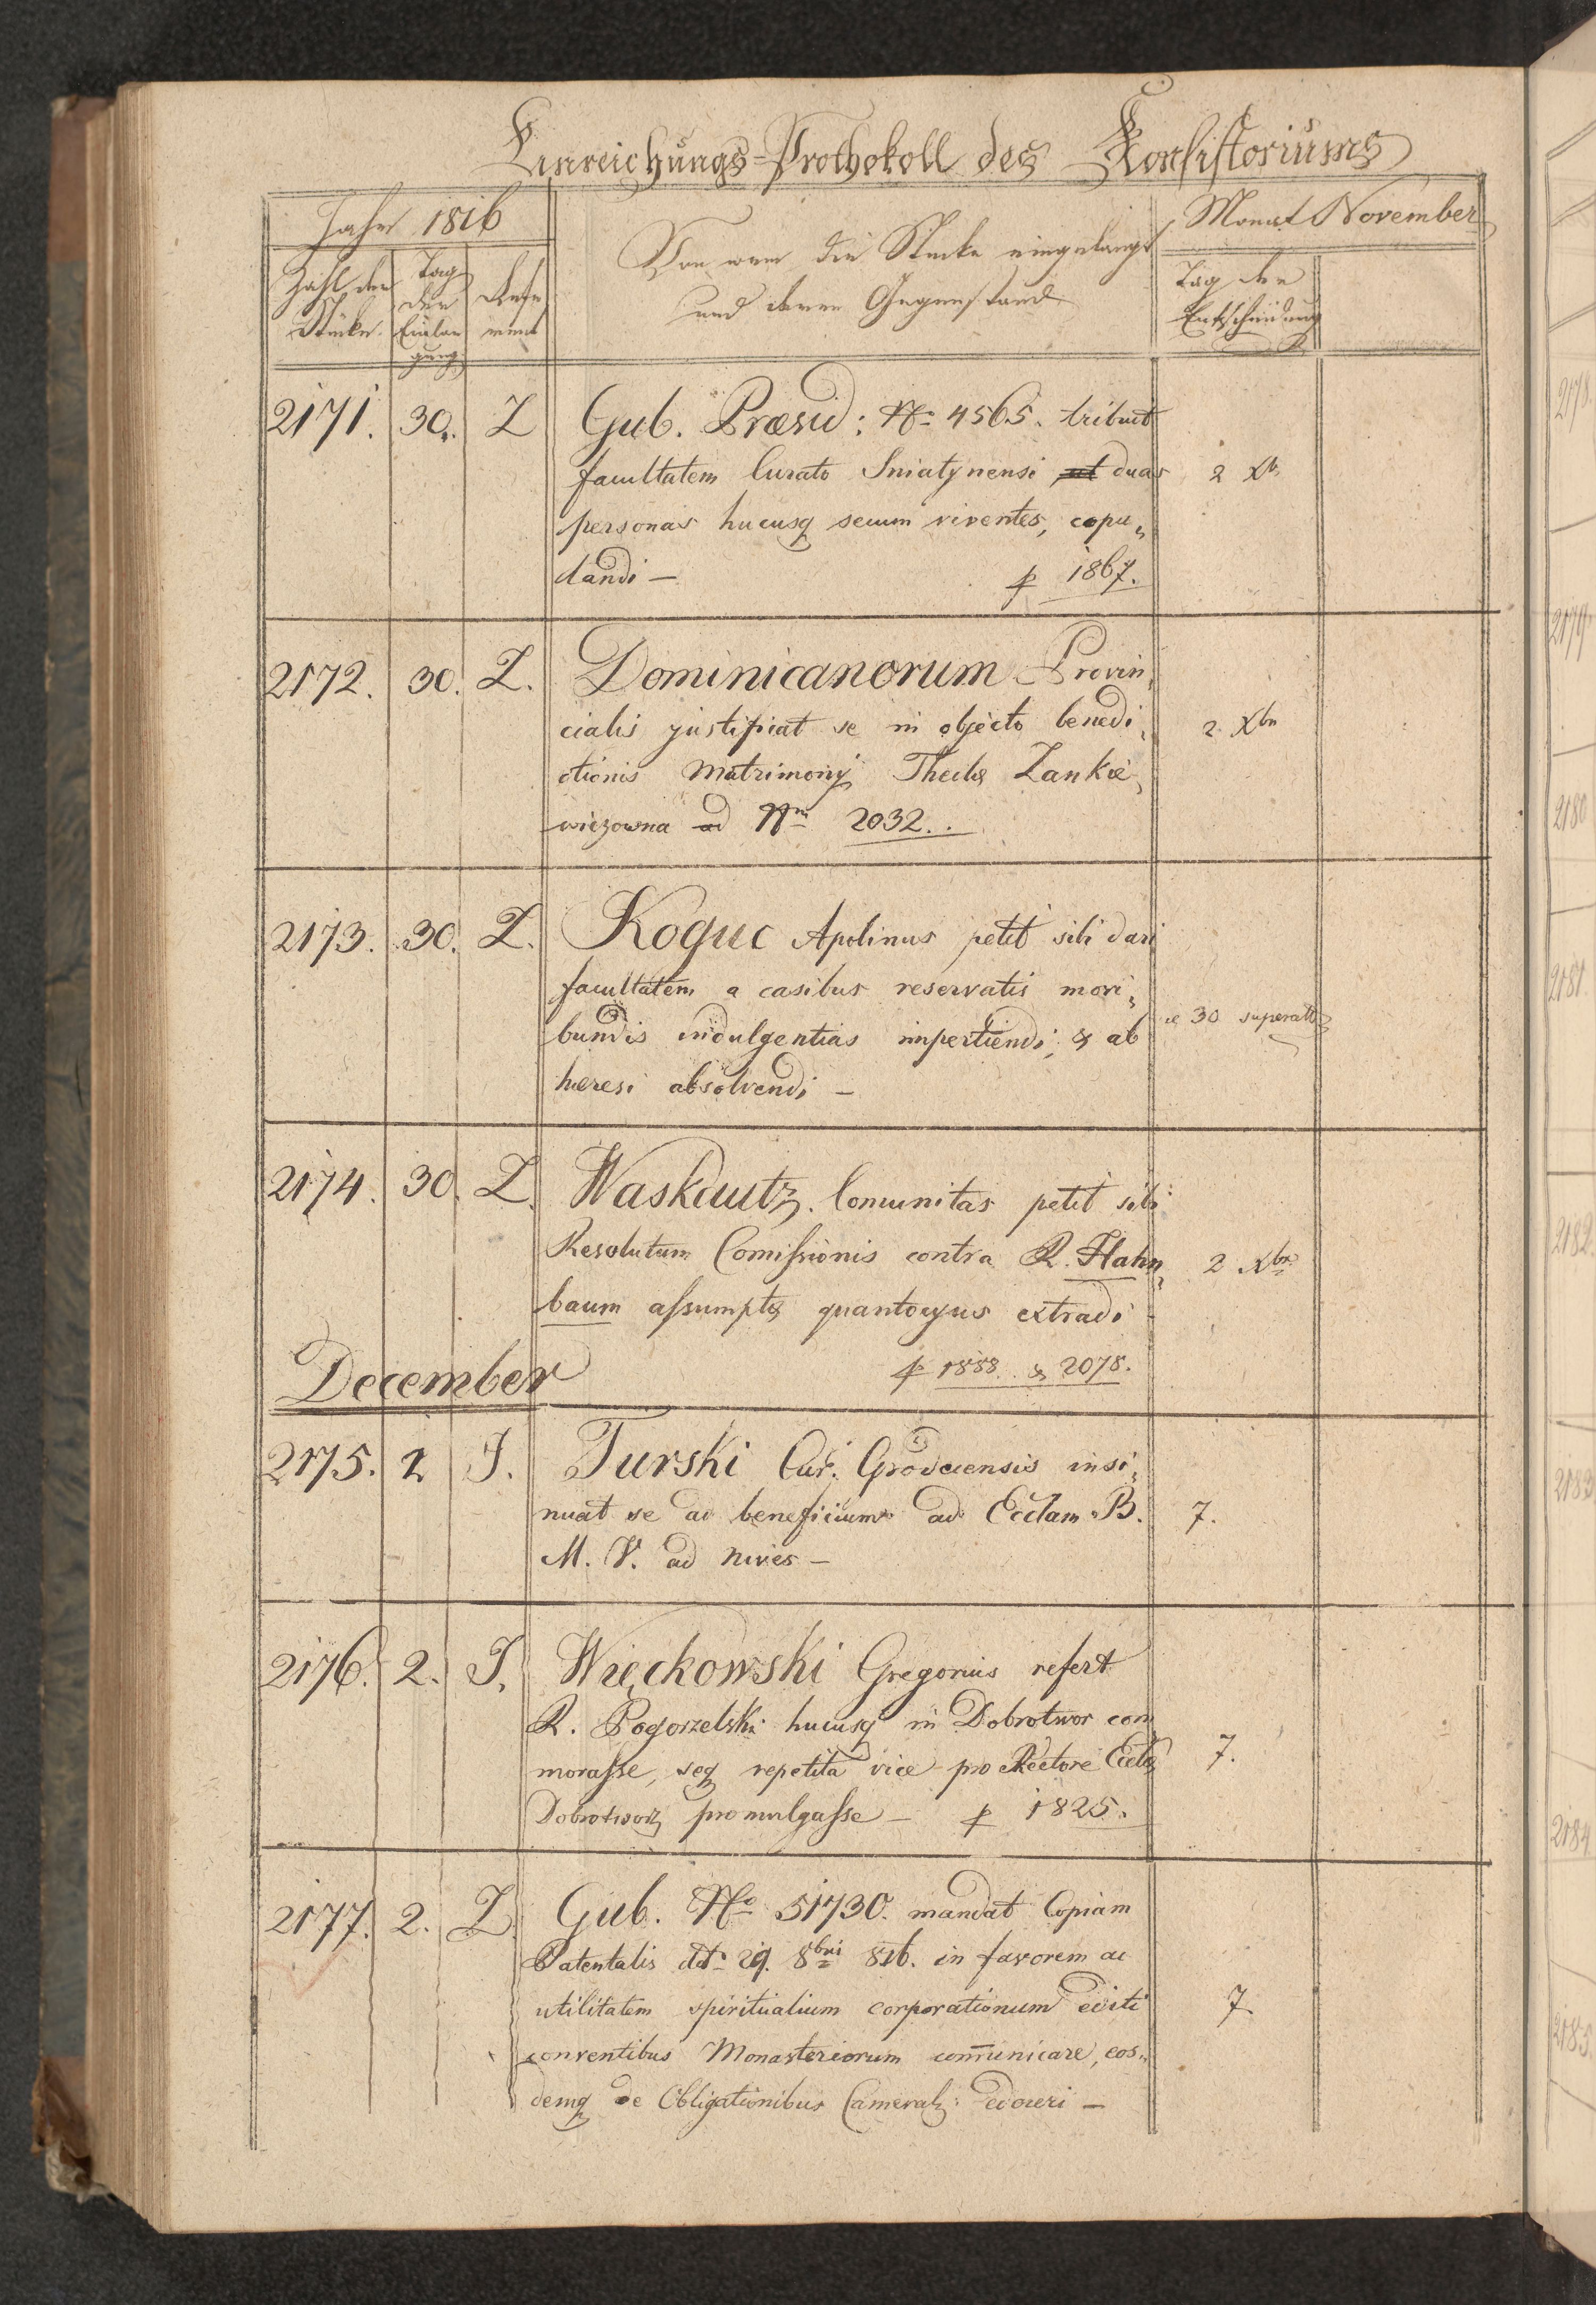 Einreichungs-Prothokoll des Konsistoriums
Jahr 1816
Monat November
Zahl der Stücke.
Tag der Einlan gung
Refe rent
Von wem die Stücke eingelangt
und deren Gegenstand
Tag der
Entscheidung
2171. 30. Z Gub. Præsid: No 4565. tribuit
facultatem Curato Sniatynensi duas 2 Xb
personas hucusq secum viventes, copu„
landi — p 1867.
2172. 30. Z. Dominicanorum Provin„
cialis justificat se in objecto benedi„ 2. Xbr
ctionis Matrimonij Theclæ Zankie„
wiczowna ad Nm 2032..
2173. 30. Z. Koguc Apolinus petit sibi dari
facultatem a casibus reservatis mori„
bundis indulgentias impertiendi, & ab 30 superatt
hæresi absolvendi —
2174. 30. Z. Waskautz. Comunitas petit sibi
Resolutum Comissionis contra R. Hahn„ 2 Xbr
baum assumptæ quantocyus extradi -
p 1888. & 2078.
December
2175. 2 J. Turski Cur. Grodecensis insi„
nuat se ad beneficium ad Ecclam B. 7.
M. V. ad nives —
2176. 2. J. Więckowski Gregorius refert
R. Pogorzelski hucusq in Dobrotwor com
morasse, seq repetita vice pro Rectore Eccl 7.
Dobrotwor promulgasse — p 1825.
2177. 2. Z. Gub. No 51730. mandat Copiam
Patentalis dd 29. 8bri 816. in favorem ac
utilitatem spiritualium corporationum editi 7.
conventibus Monasteriorum comunicare, eos„
demq de Obligationibus Cameral: edoceri —
2178.
2179
2180
2181.
2182.
2183
2184
2185.